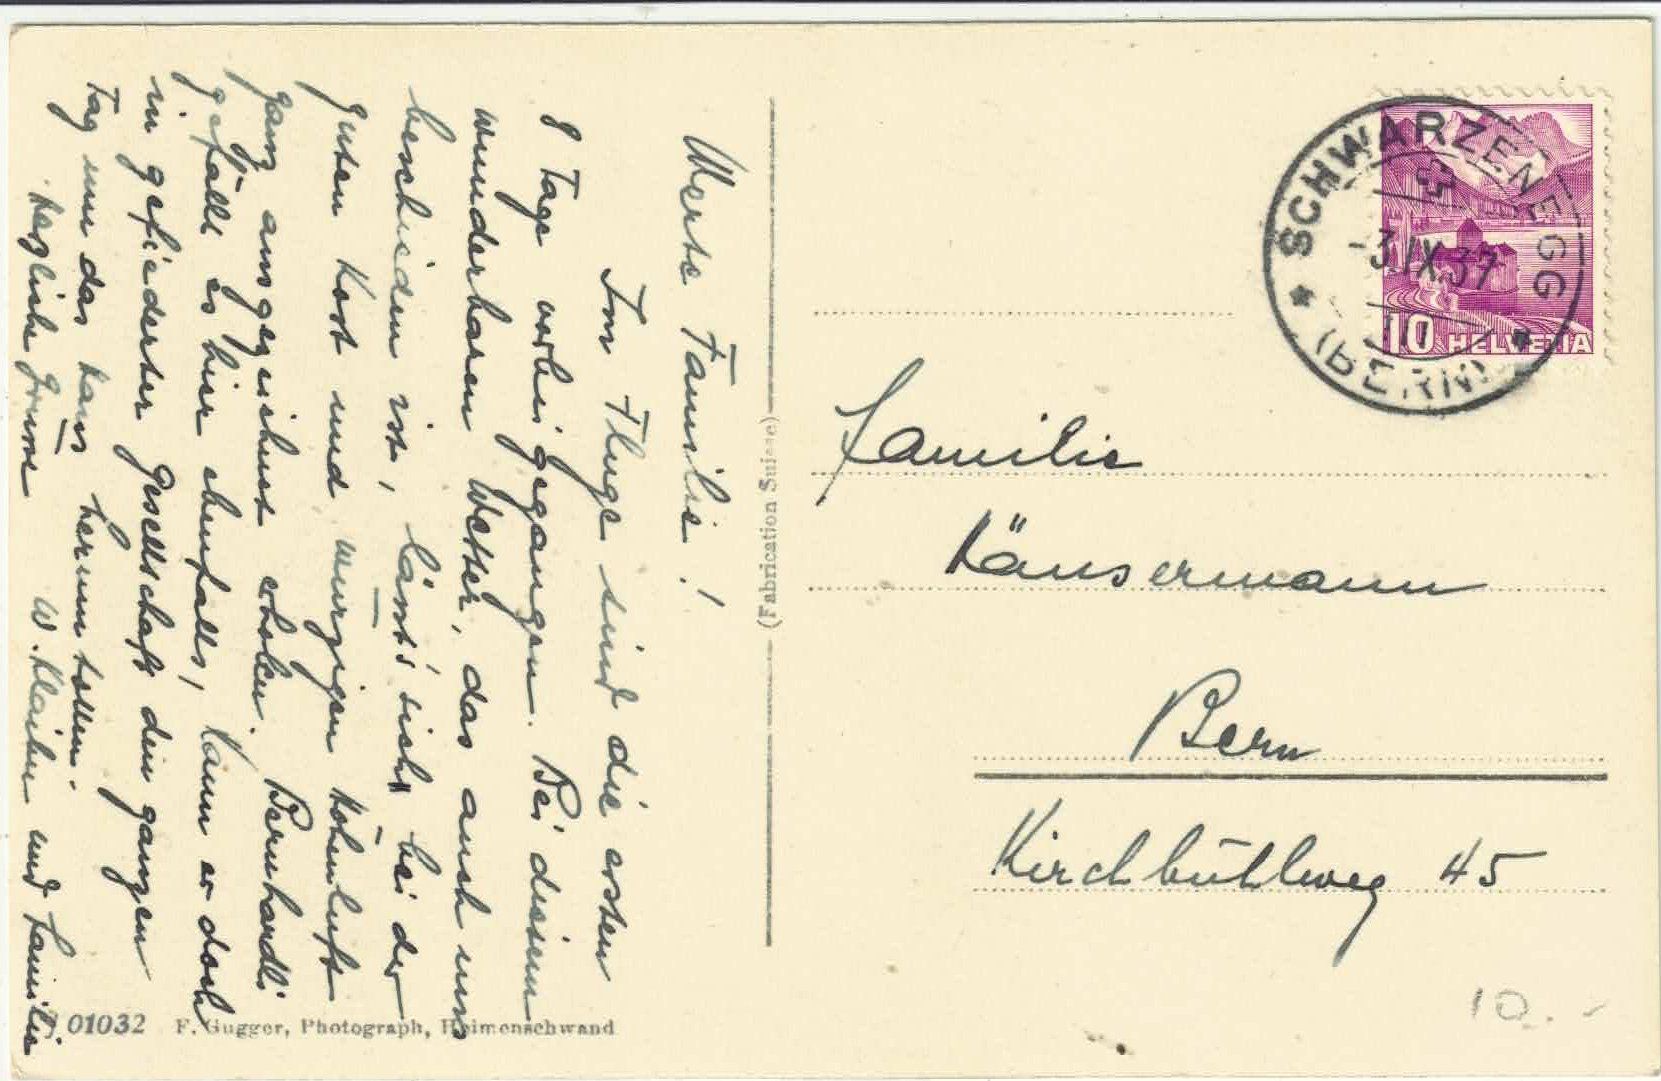 Werte Familie!
Im Fluge sind die ersten
8 Tage vorbeigegangen. Bei diesem
wunderbaren Wetter, das auch uns
beschieden ist, lässt's sich bei der
guten Kost und würzigen Höhenluft
ganz ausgezeichnet erholen. Bernhardli
gefällt es hier ebenfalls, kann er doch
in gefiederter Gesellschaft den ganzen
Tag um das Haus herum tollen.
Herzliche Grüsse W. und Familie
(Fabrication Suisse)
J 01032 F. Gugger, Photograph, Heimenschwand
SCHWARZENEGG
-3.IX.37
(BERN)
10 HELVETIA
Familie
Känsermann
Bern
Kirchbühlweg 45
10.-